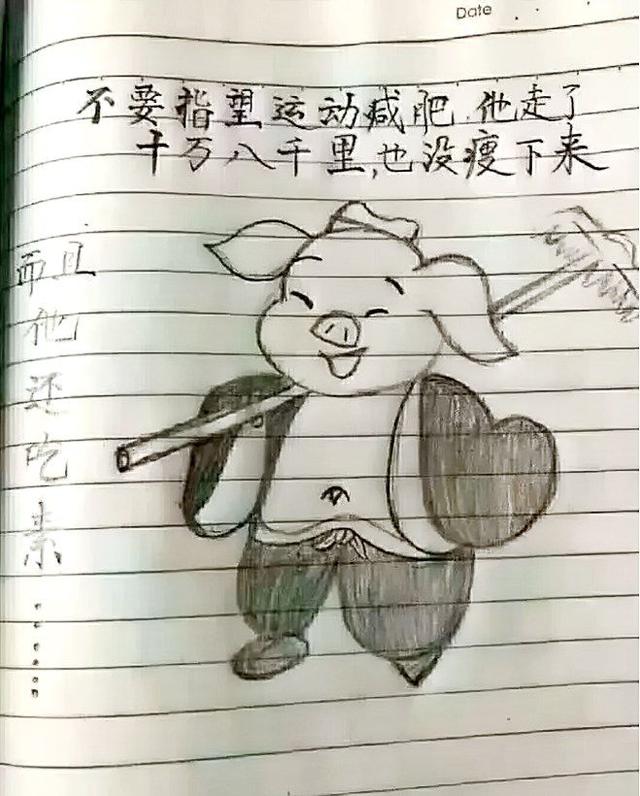 Date
不要指望运动减肥.他走了
十万八千里,也没瘦下来
而且他还吃素......